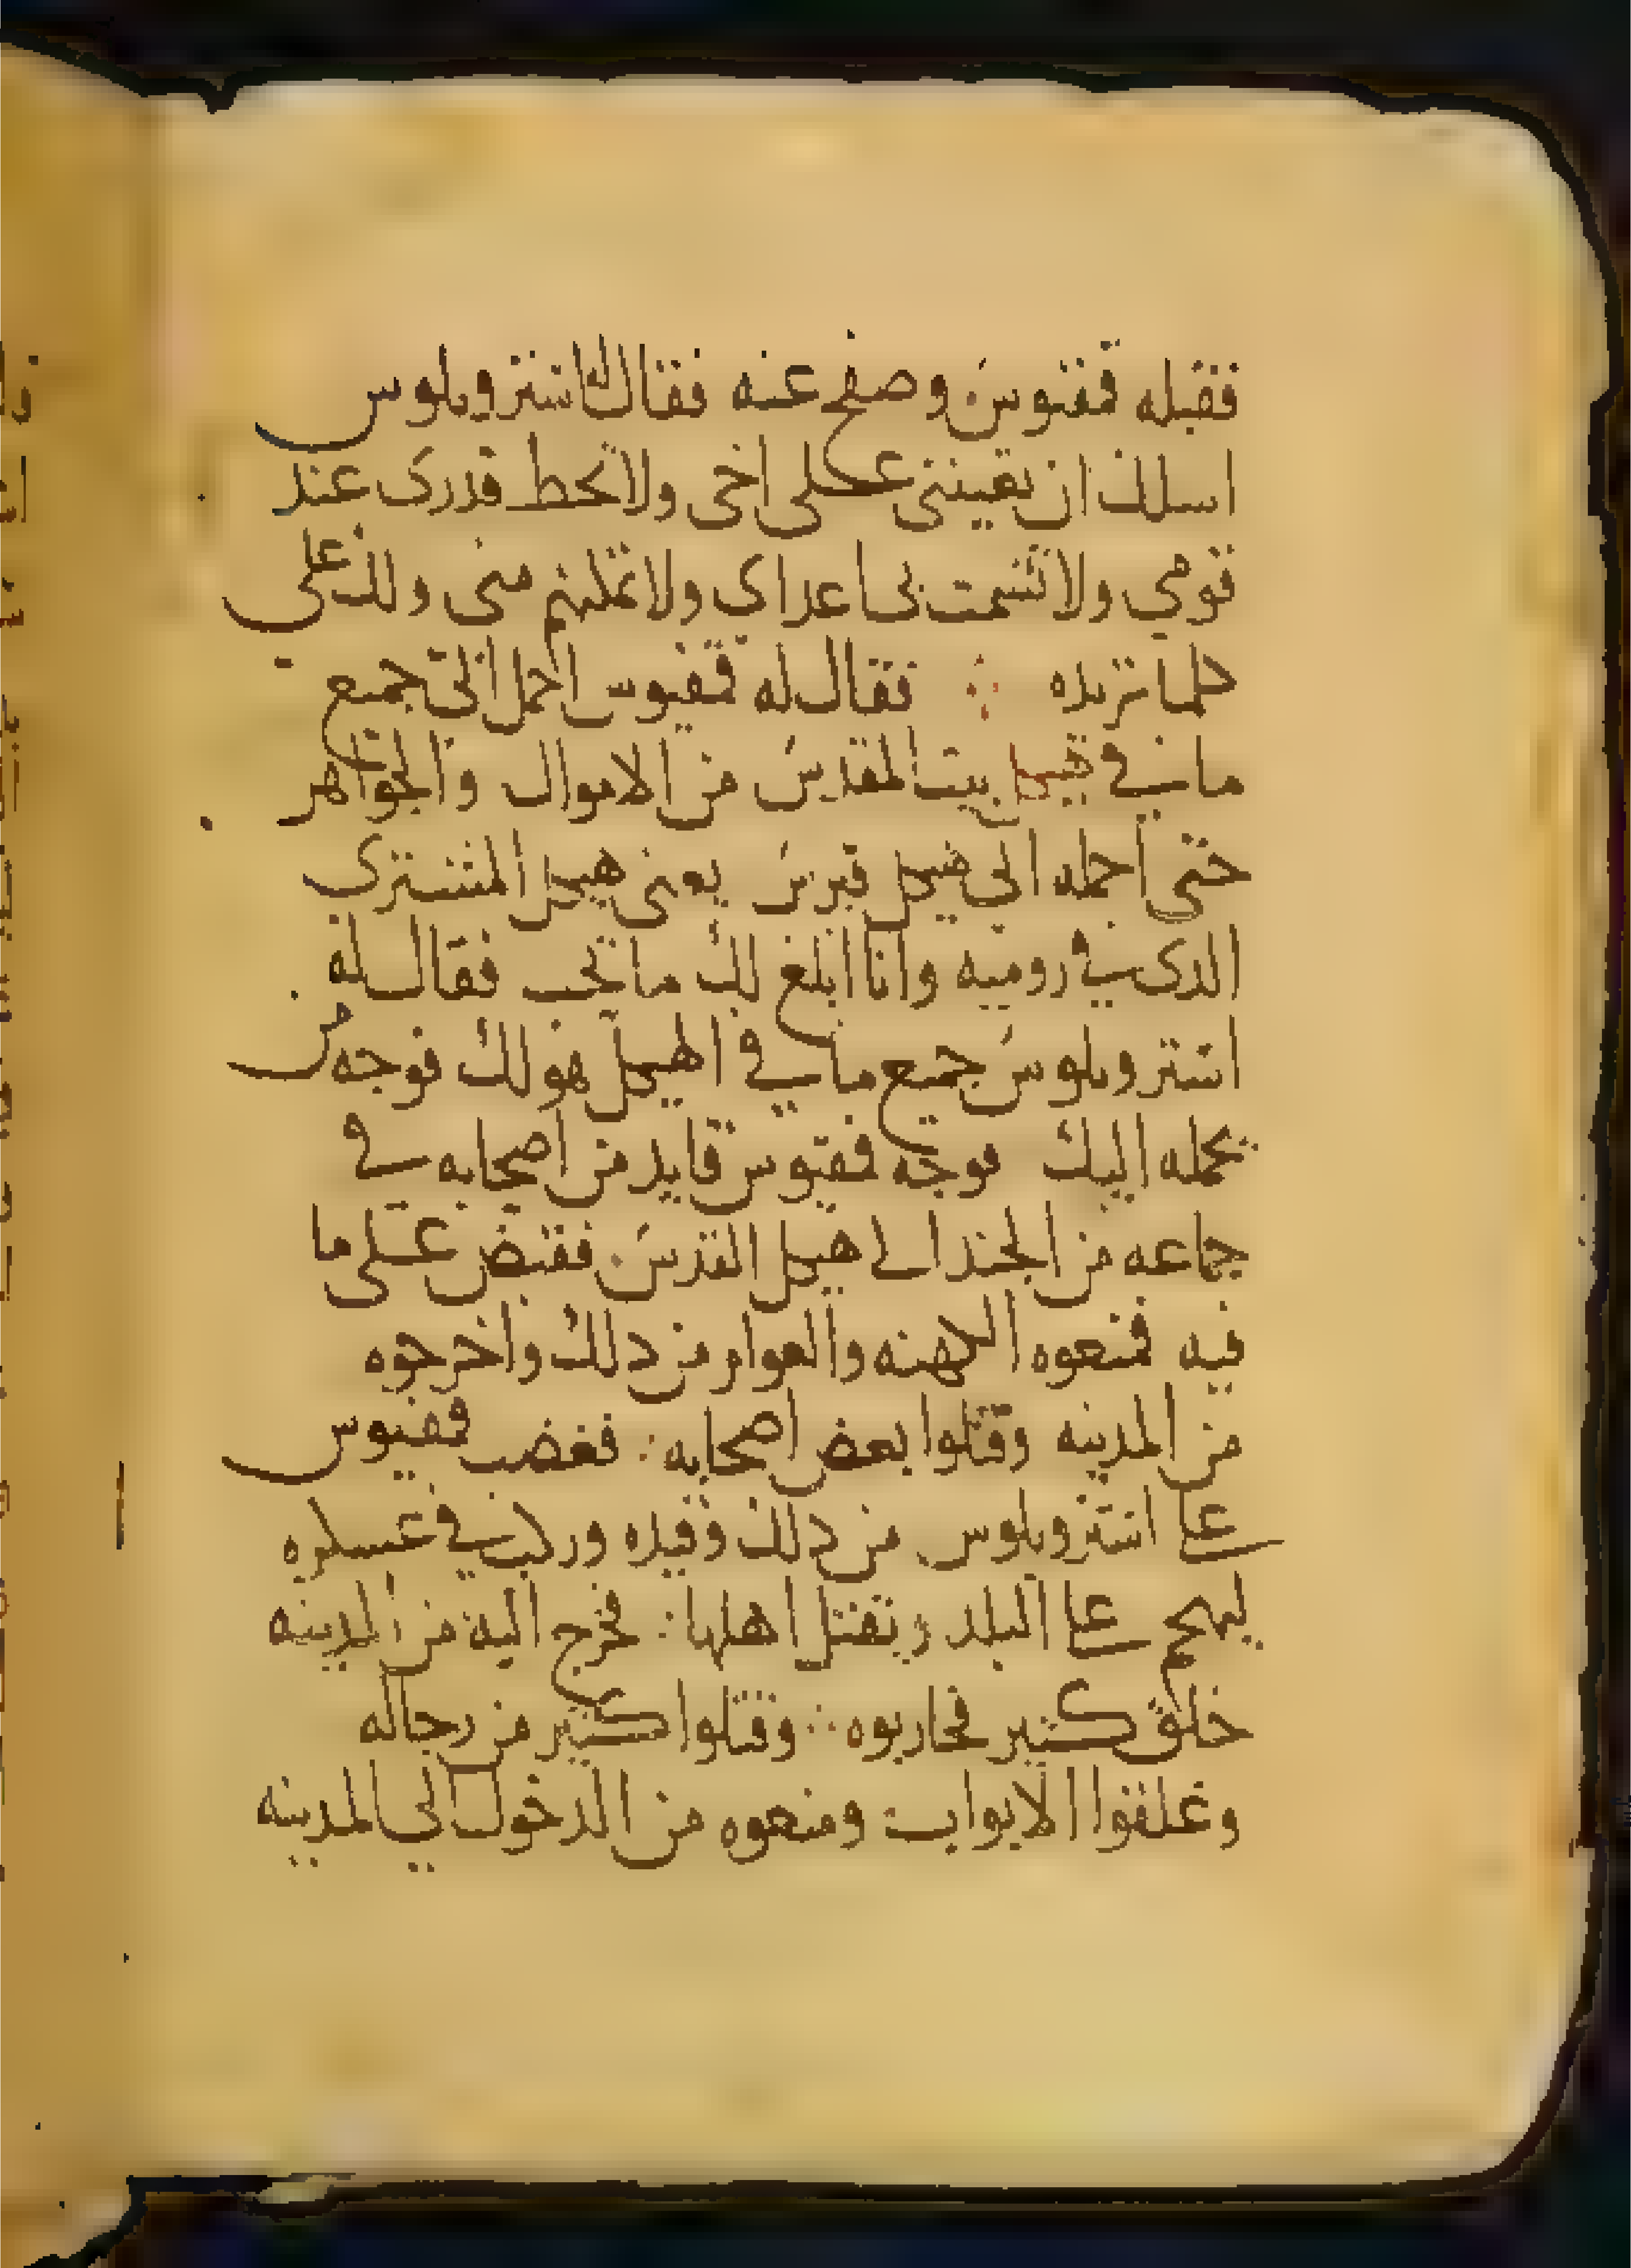 فقبله فمفتوس وصفح عنه فقال استروبلوس
اسلك ان تعينني على اخي ولا تحط قدري عند
قومي ولا تشمت بي اعداي ولا تملنهم مني ولك علي
كلما تريده ∴ فقال له فمفيوس احمل الي جميع
ما في هيكل بيت المقدس من الاموال والجواهر
حتى احمله الي هيكل قبرس يعني هيكل المشتري
الدي في روميه وانا ابلغ لك ما تحب فقال له
استروبلوس جميع ما في الهيكل هو لك فوجه من
يحمله اليك فوجه فمفيوس قايد من اصحابه في
جماعه من الجند الى هيكل القدس فقبض على ما
فيه فمنعوه الكهنه والعوام من دلك واخرجوه
من المدينه وقتلوا بعض اصحابه ∴ فغضب فمفيوس
على استروبلوس من دلك وقيده وركب في عسكره
ليهجم على البلد ويقتل اهلها ∴ فخرج اليه من المدينه
خلق كثير فحاربوه ∴ وقتلوا كثير من رجاله
وغلقوا الابواب ومنعوه من الدخول الي المدينه